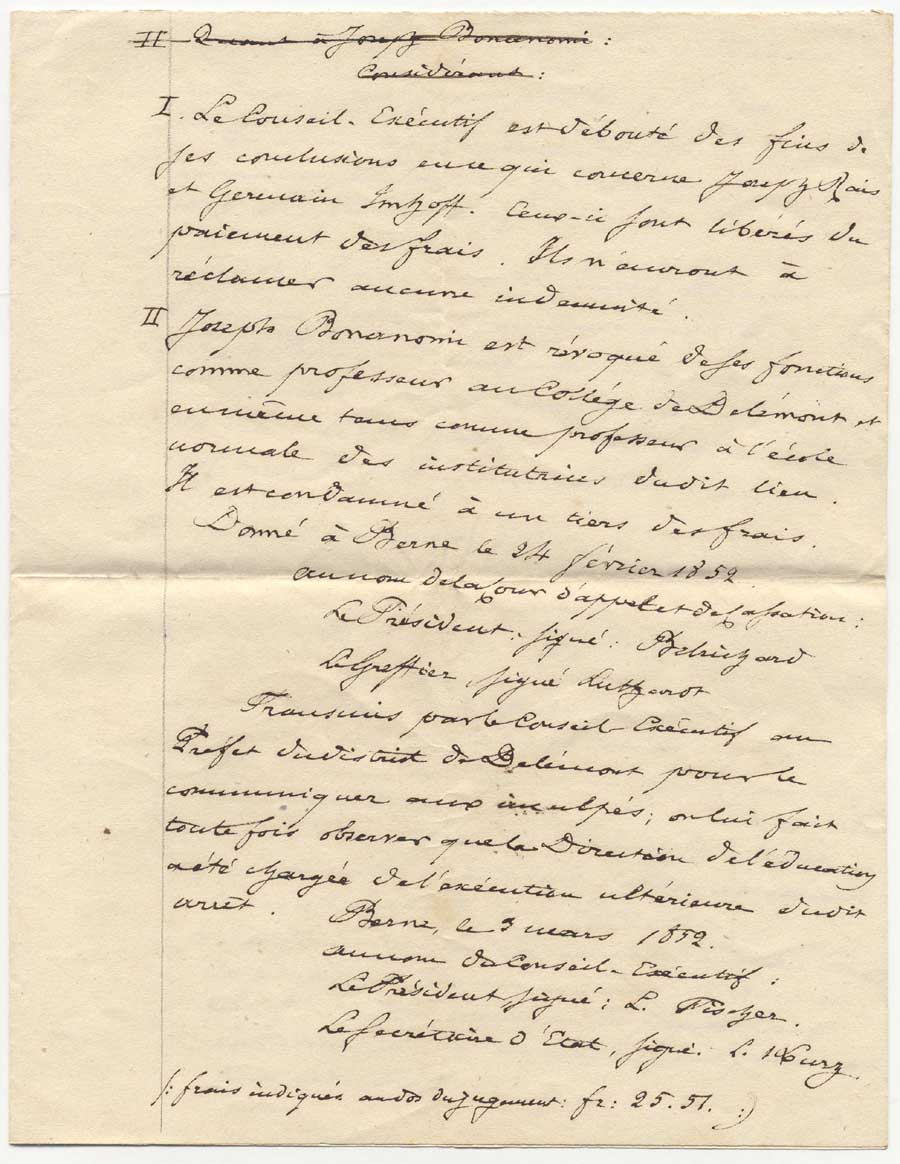 II Quant à Joseph Bonanomi :
Considérant :
I. Le Conseil-Exécutif est débouté des fins de
ses conclusions en ce qui concerne Joseph Rais
et Germain Imhoff. Ceux-ci sont libérés du
paiement des frais. Ils n'auront à
réclamer aucune indemnité.
II Joseph Bonanomi est révoqué de ses fonctions
comme professeur au Collége de Delémont et
en même tems comme professeur à l'école
normale des institutrices dudit lieu.
Il est condamné à un tiers des frais.
Donné à Berne le 24 février 1852
au nom de la Cour d'appel et de Cassation :
Le Président : signé : Belrichard
Le Greffier, signé Luthardt
Transmis par le Conseil-Exécutif au
Préfet du district de Delémont pour le
communiquer aux inculpés; on lui fait
toute fois observer que la Direction de l'éducation
a été chargée de l'exécution ultérieure dudit
arrêt.
Berne, le 3 mars 1852.
au nom du Conseil-Exécutif :
Le Président signé : L. Fischer.
Le Secrétaire d'Etat, signé. L. Kurz
/: frais indiqués au dos du jugement : fr : 25. 51. :/